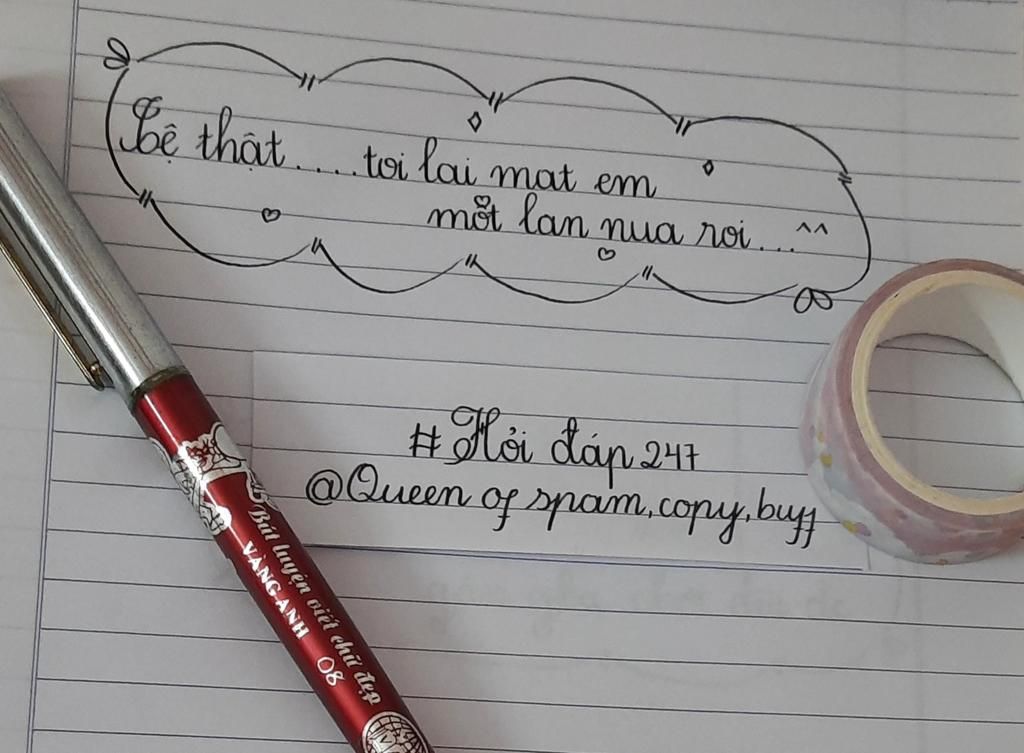 Lệ thật....toi lai mat em
một lan nua roi...^^
#Hỏi đáp 247
@Queen of spam,copy,buff
Bút luyện viết chữ đẹp
VÀNG ANH 08